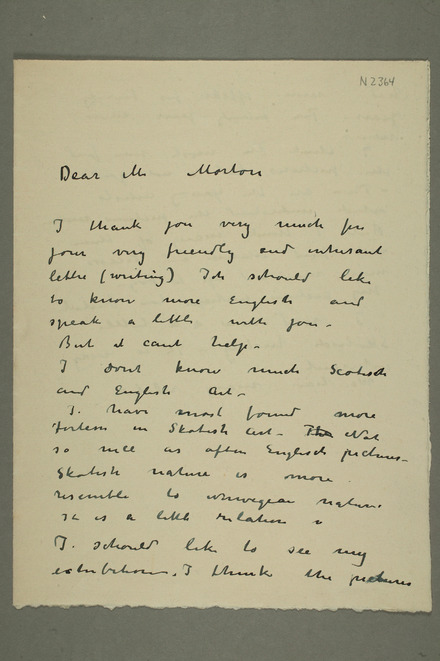 N 2364
Dear Mr Morton
I thank you very much for
your very friendly and intresant
lettre (writing) Ich schould like
to know more English and
speak a little with you -
But it cant help -
I dont know much Scotisch
and English Art -
I. have most found more
in Skotish art - The Not
so nice as often English pictures -
Skotish nature is more
resemble to norwegean nature
is a little relation
I. schould like to see my
exhibition. I think the pictures